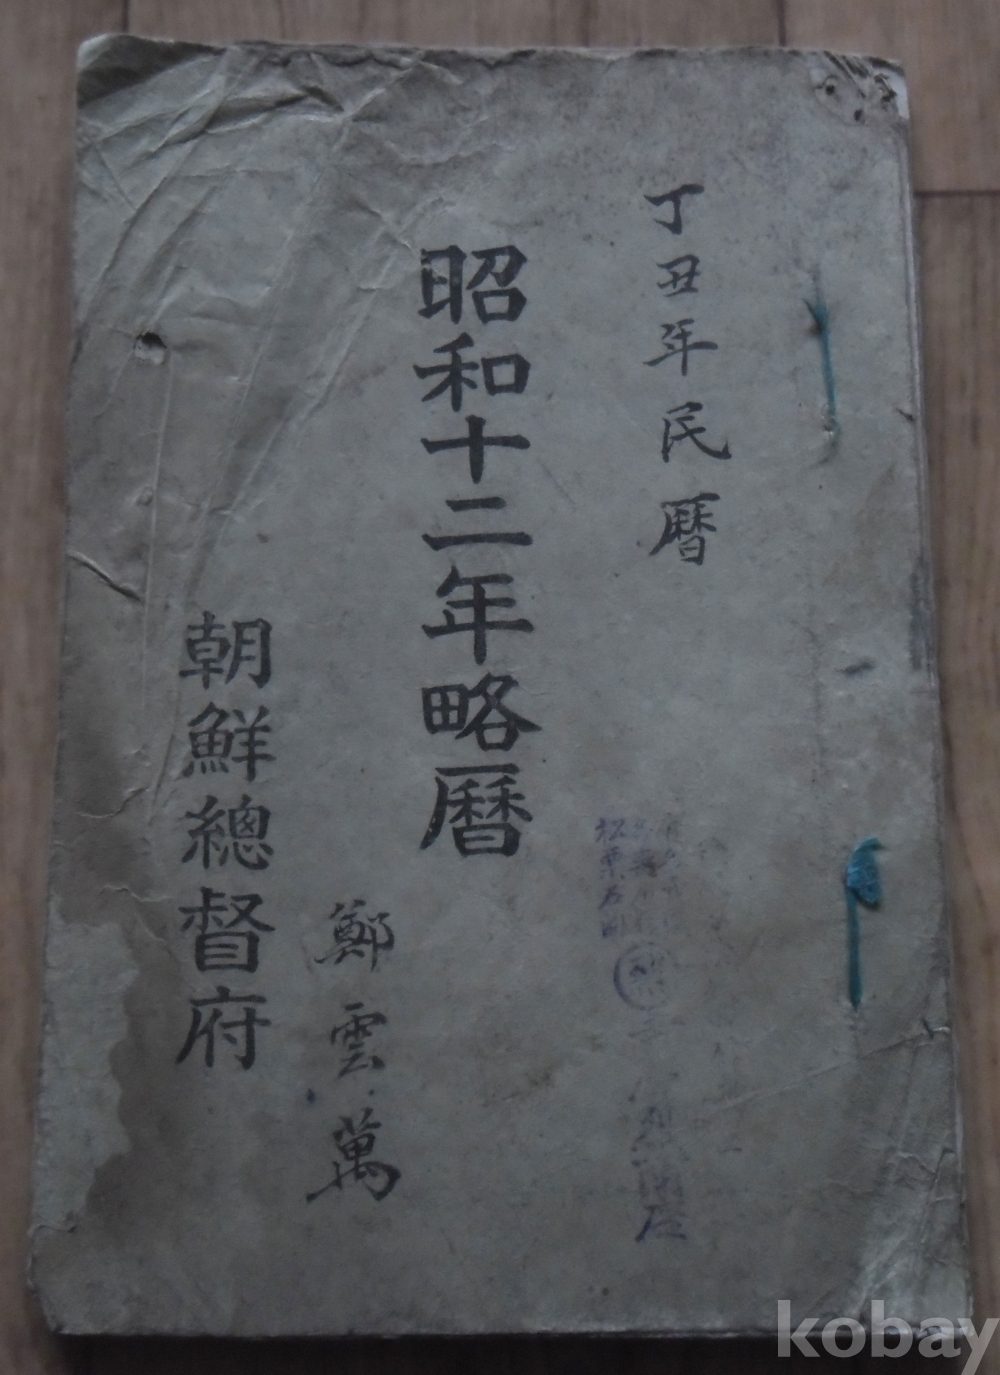 丁丑年民曆
昭和十二年略曆
鄭雲萬
朝鮮總督府
kobay